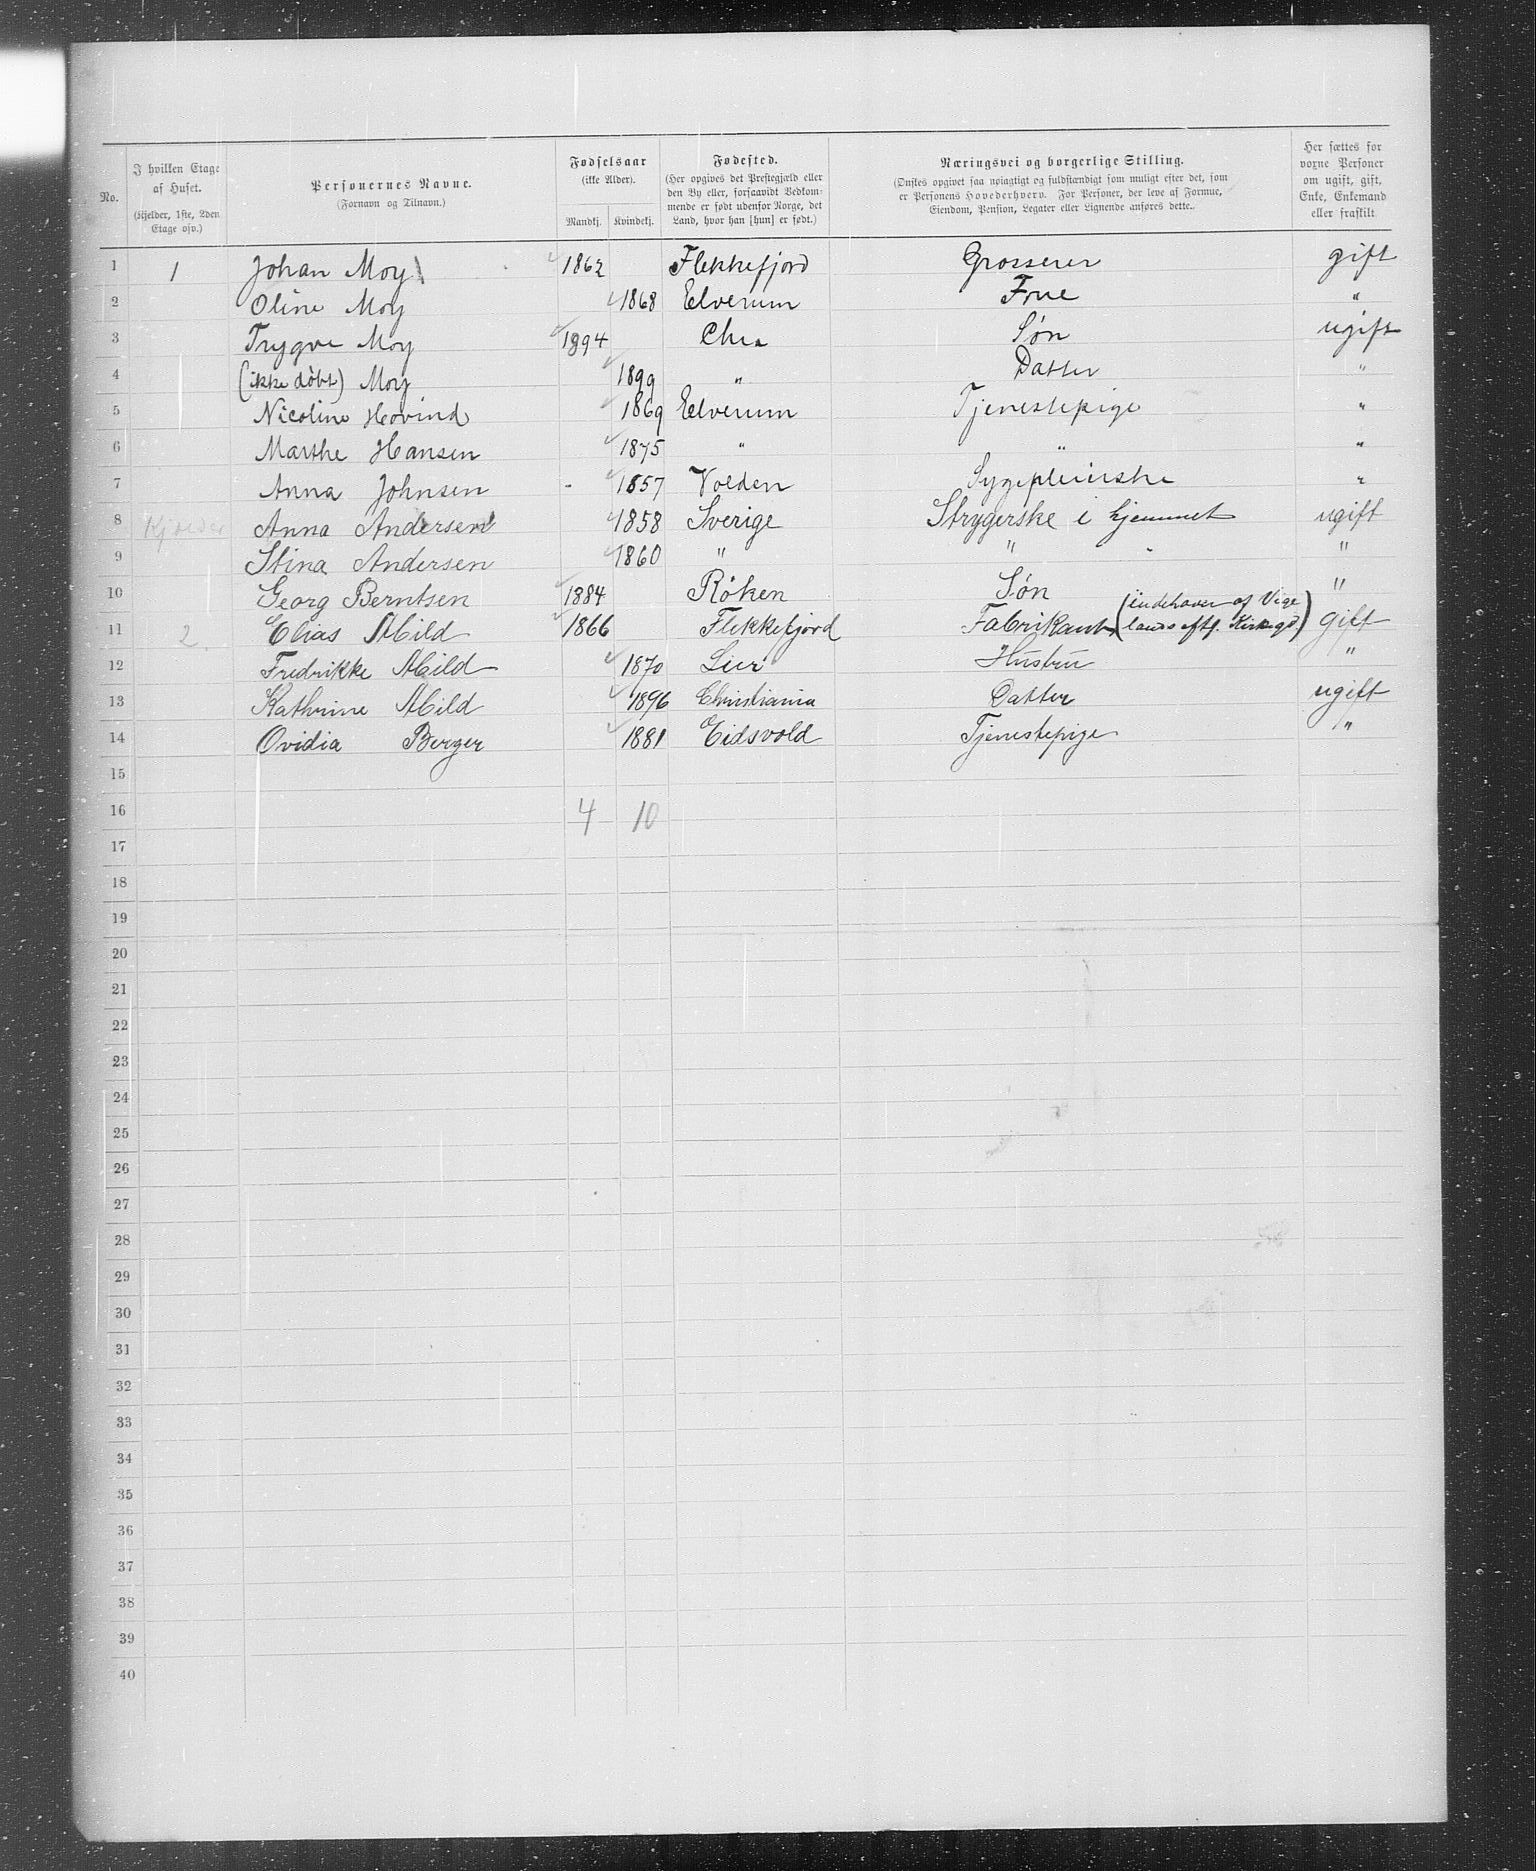 No.
I hvilken Etage af Huset. (Kjelder, 1ste, 2den Etage osv.)
Personernes Navne. (Fornavn og Tilnavn.)
Fødselsaar (ikke Alder). Mandkj. Kvindekj.
Fødested. (Her opgives det Præstegjæld eller den By eller, forsaavidt Vedkommende er født udenfor Norge, det Land, hvor han [hun] er født.)
Næringsvei og borgerlige Stilling. (Ønskes opgivet saa nøiagtigt og fuldstændigt som muligt efter det, som er Personens Hovederhverv. For Personer, der leve af Formue, Eiendom, Pension, Legater eller Lignende anføres dette..
Her sættes for voxne Personer om ugift, gift, Enke, Enkemand eller fraskilt
1 1 Johan Moy 1862 Flekkefjord Grosserer gift
2 Oline Moy 1868 Elverum Frue "
3 Trygve Moy 1894 Chra Søn ugift
4 (ikke döbt) Moy 1899 " Datter "
5 Nicoline Hovind 1869 Elverum Tjenestepige "
6 Marthe Hansen 1875 " " "
7 Anna Johnsen 1857 Volden Sygepleierske "
8 Kjælder Anna Andersen 1858 Sverige Strygerske i hjemmet ugift
9 Stina Andersen 1860 " " " "
10 Georg Berntsen 1884 Röken Søn "
11 2. Elias Mild 1866 Flekkefjord Fabrikant (indehaver af Vige lands eftf. Kirkegd) gift
12 Fredrikke Mild 1870 Lier Hustru "
13 Kathrine Mild 1896 Christiania Datter ugift
14 Ovidia Berger 1881 Eidsvold Tjenestepige "
15
16 4 10
17
18
19
20
21
22
23
24
25
26
27
28
29
30
31
32
33
34
35
36
37
38
39
40